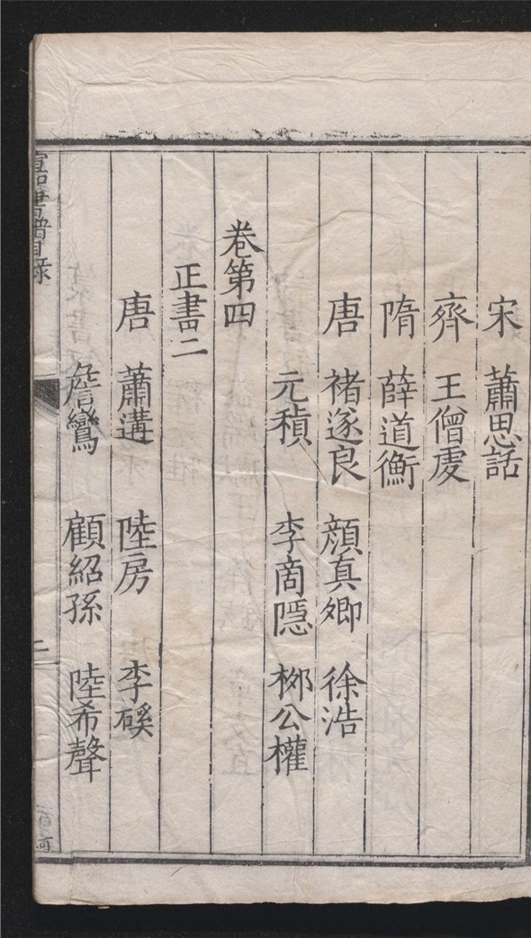 宋 蕭思話
齊 王僧虔
隋 薛道衡
唐 褚遂良 顏真卿 徐浩
元稹 李商隱 栁公權
卷第四
正書二
唐 蕭遘 陸房 李磎
詹鸞 顧紹孫 陸希聲
書譜目錄
二